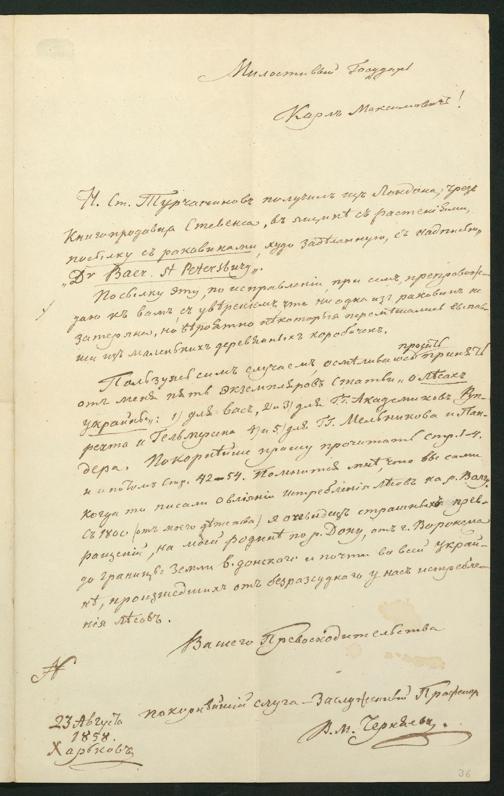 Милостивый Государь
Карлъ Максимовичъ!
Н. Ст. Турчаниновъ получилъ изъ Лондона, чрезъ
Книгопродавца Стевенса, въ ящикѣ съ растеніями,
посылку съ раковинами, худо задѣланную, съ надписью
„Dr Baer. St Petersburg„.
Посылку эту, по исправленіи, при семъ, препровож-
даю къ вамъ съ увѣреніемъ, что ни одна изъ раковинъ не
затеряна, но вѣроятно нѣкоторыя перемѣшались выпав-
ши изъ маленькихъ деревянныхъ коробочекъ.
Пользуясь симъ случаемъ, осмѣливаюсь просить принять
отъ меня пять экземпляровъ статьи „о лѣсахъ
украйны„: 1) для васъ, 2 и 3) для Гг. Академиковъ Руп-
рехта и Гельмерсена 4) и 5) для Гг. Мельникова и Пан-
дера. Покорнѣйше прошу прочитать стр. 1-4.
и потомъ стр. 42–54. Помнится мнѣ, что вы сами
когда то писали о вліяніи истребленія лѣсовъ на р. Волгу.
Съ 1800 (отъ моего дѣтства) я очевидецъ страшныхъ прев-
ращеній, на моей родинѣ по р. Дону, отъ г. Воронежа
до границъ Земли в. донского и почти во всей украй-
нѣ, происшедшихъ отъ безразсуднаго у насъ истребле-
нія лѣсовъ.
Вашего Превосходительства
покорнѣйшій слуга – Заслуженный Профессоръ
В. М. Черняевъ.
23 Августа
1858.
Харьковъ
36